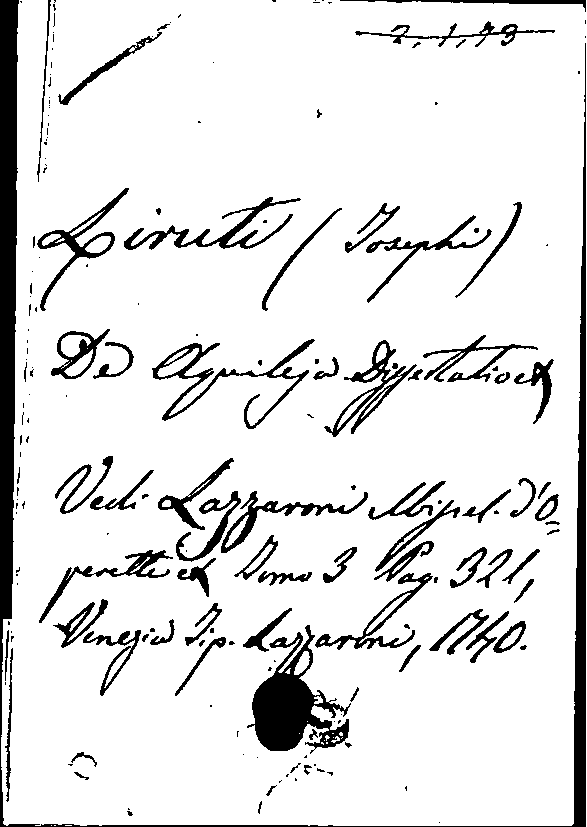 2, 1, 73
Liruti (Josephi)
De Aquileja Dissertatio etc
Vedi Lazzaroni Miscel. d'O=
perette etc Tomo 3 Pag. 321,
Venezia Tip. Lazzaroni, 1740.